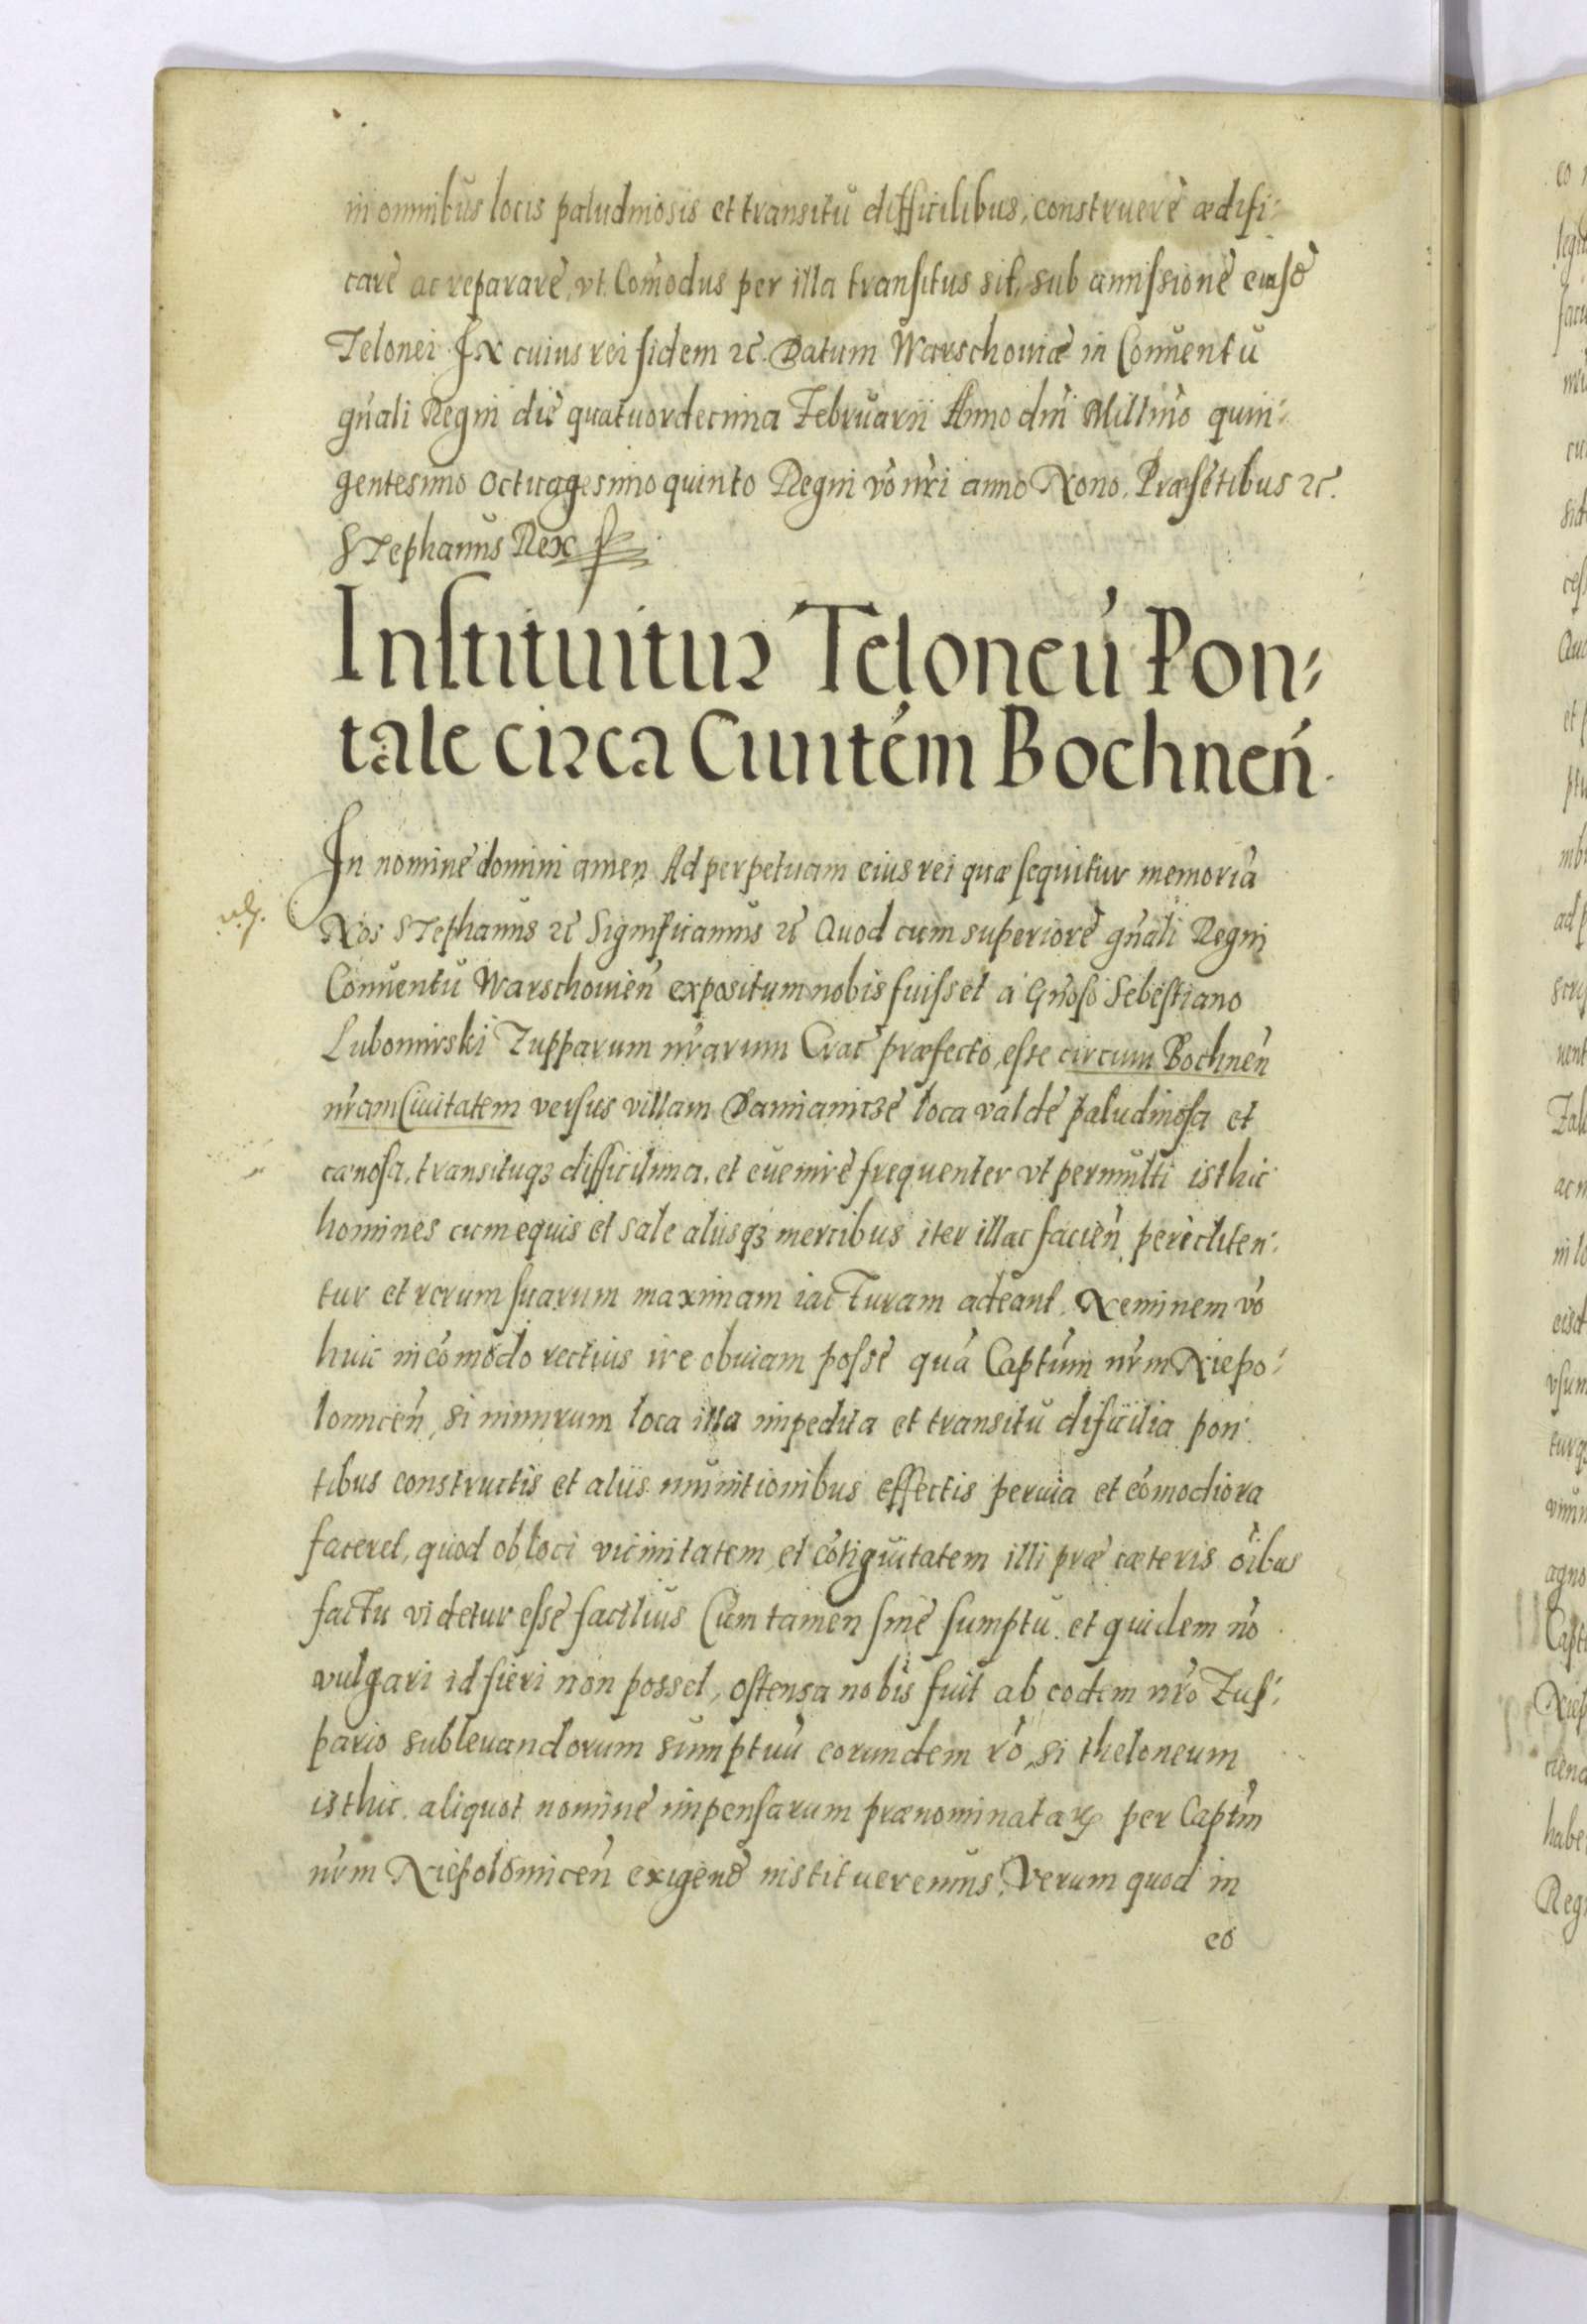 in omnibus locis paludinosis et transitu difficilibus, construere ædifi:
care ac reparare, vt Com̃odus per illa transitus sit, sub amissione eiusd̃
Telonei IN cuius rei fidem ꝛc̃. Datum Warschouiæ in Conuentu
gñali Regni die quatuordecima Februarii Anno dñi Millmõ quin:
gentesimo Octuagesimo quinto Regni võ nr̃i anno Nono. Præsẽtibus ꝛc̃.
STephanus Rex
Instituitur Teloneũ Pon:
tale circa Ciuitẽm Bochneñ.
In nomine domini amen Ad perpetuam eius rei quæ sequitur memoriã
Nos STephanus ꝛc̃ Significamus ꝛc̃ Quod cum superiore gñali Regni
Conuentu Warschouieñ expositum nobis fuisset a Gñoso Sebestiano
Lubomirski Zupparum nr̃arum Crac̃ præfecto, esse circum Bochneñ
nr̃am Ciuitatem versus villam Damianicze loca valde paludinosa et
cænosa, transituqꝫ difficilima, et euenire frequenter vt permulti isthic
homines cum equis et sale aliisqꝫ mercibus iter illac facieñ pericliten:
tur et rerum suarum maximam iacTuram adeant. Neminem võ
huic incõmodo rectius ire obuiam posse quã Captũm nr̃m Niepo:
lomiceñ, si nimirum loca illa impedita et transitu dificilia pon:
tibus constructis et aliis munitionibus effectis peruia et cõmodiora
faceret, quod ob loci vicinitatem et cõtiguitatem illi præ cæteris õibus
facTu videtur esse facilius Cum tamen sine sumptu et quidem nõ
vulgari id fieri non posset, ostensa nobis fuit ab eodem nr̃o Zup:
pario subleuandorum sumptuũ eorundem rõ, si theloneum
isthic aliquot nomine impensarum prænominataꝝ per Captm̃
nr̃m Niepolõmiceñ exigend̃ institueremus. Verum quod in
eo